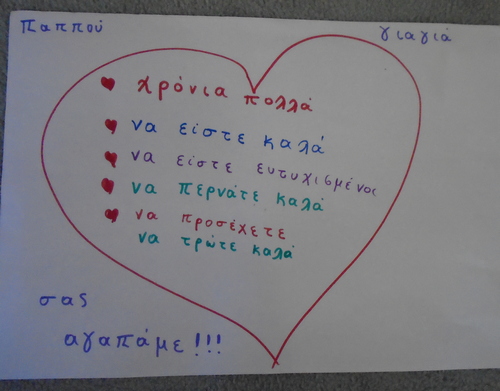 Παππού γιαγιά
χρόνια πολλά
να είστε καλά
να είστε ευτυχισμένοι
να περνάτε καλά
να προσέχετε
να τρώτε καλά
σας
αγαπάμε!!!